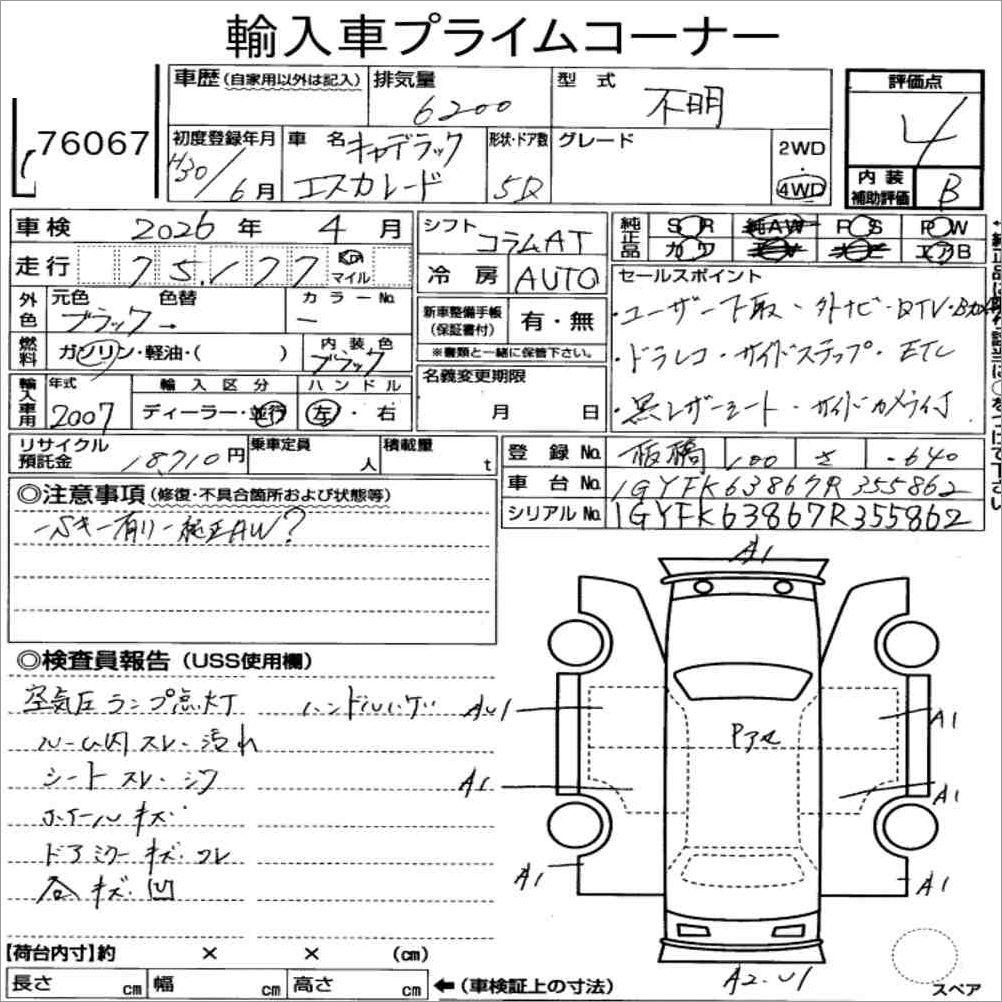 輸入車プライムコーナー
76067
車歴(自家用以外は記入) 排気量 6200 型式 不明 評価点 4
初度登録年月 H30/6月 車名 キャデラック エスカレード 形状・ドア数 5D グレード 2WD・4WD 内装補助評価 B
車検 2026年 4月 シフト コラムAT 純正品 SR 純AW PS PW
走行 75,177 km マイル 冷房 AUTO カワ エアB
外色 元色 ブラック 色替 → カラーNo. ー 新車整備手帳(保証書付) 有・無 ※書類と一緒に保管下さい。
セールスポイント
・ユーザー下取・外ナビ・DTV・Bカメ
・ドラレコ・サイドステップ・ETC
・黒レザーシート・サイドカメラ付
燃料 ガソリン・軽油・( ) 内装色 ブラック 名義変更期限 月 日
輸入車用 年式 2007 輸入区分 ディーラー・並行 ハンドル 左・右
リサイクル預託金 18,710円 乗車定員 人 積載量 t
登録No. 板橋 100 さ ・640
車台No. 1GYFK63867R355862
シリアルNo. 1GYFK63867R355862
◎注意事項(修復・不具合箇所および状態等)
ーSキー有リー純正AW?
◎検査員報告(USS使用欄)
空気圧ランプ点灯 ハンドルハゲ
ルーム内スレ・汚れ
シートスレ・シワ
ホイールキズ
ドアミラーキズ・ワレ
各キズ・凹
A1
AU1
A1
Pアセ
A1
A1
A1
A1
A2・U1
スペア
【荷台内寸】約 × × (cm)
長さ cm 幅 cm 高さ cm ←(車検証上の寸法)